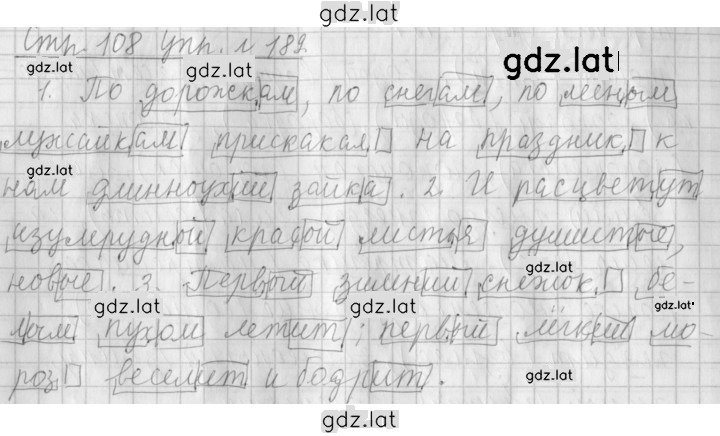 gdz.lat
Стр. 108 Упр. № 189.
gdz.lat gdz.lat gdz.lat
1. По дорожкам, по снегам, по лесным
лужайкам прискакал на праздник к
gdz.lat
нам длинноухий зайка. 2. И расцветут
изумрудной красой листья душистые,
gdz.lat
новые. 3. Первый зимний снежок бе-
gdz.lat gdz.lat gdz.lat
лым пухом летит; первый лёгкий мо-
роз веселит и бодрит.
gdz.lat
gdz.lat